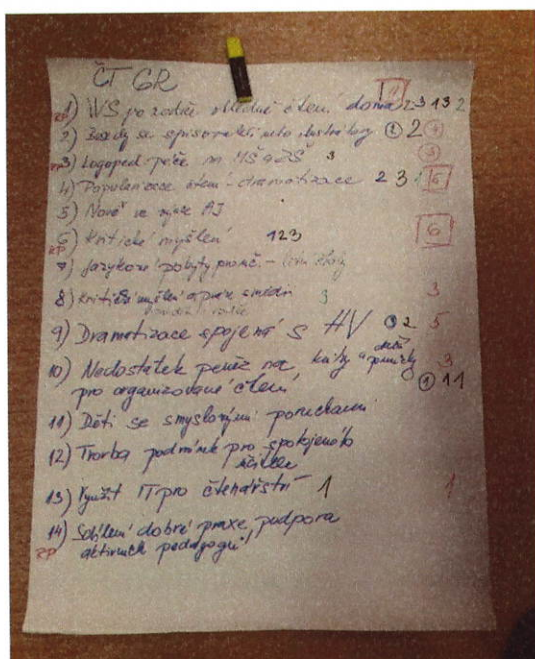 ČT GR
1) WS pro rodiče ohledně čtení doma 2 3 1 3 2 11
RP
2) Besedy se spisovateli nebo ilustrátory 2 2
3) Logoped. péče na MŠ a ZŠ 3 3
4) Popularizace čtení - dramatizace 2 3 1 6
5) Nové ve výuce AJ
6) Kritické myšlení 1 2 3 6
RP
7) Jazykové pobyty
8) Kritické myšlení a práce s médii 3 3
9) Dramatizace spojená s HV 3 2 5
10) Nedostatek peněz na knihy a další pomůcky 3
pro organizované čtení 1 1 1
11) Děti se smyslovými poruchami
12) Tvorba podmínek pro spokojeného
učitele
13) Využít IT pro čtenářství 1 1
14) Sdílení dobré praxe, podpora
RP aktivních pedagogů